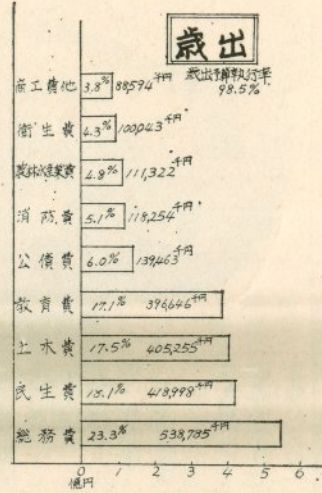 歳出
歳出予算執行率
98.5%
商工費他 3.8% 88,594千円
衛生費 4.3% 100,043千円
農林水産業費 4.8% 111,322千円
消防費 5.1% 118,254千円
公債費 6.0% 139,463千円
教育費 17.1% 396,646千円
土木費 17.5% 405,255千円
民生費 18.1% 418,998千円
総務費 23.3% 538,785千円
0 1 2 3 4 5 6
億円